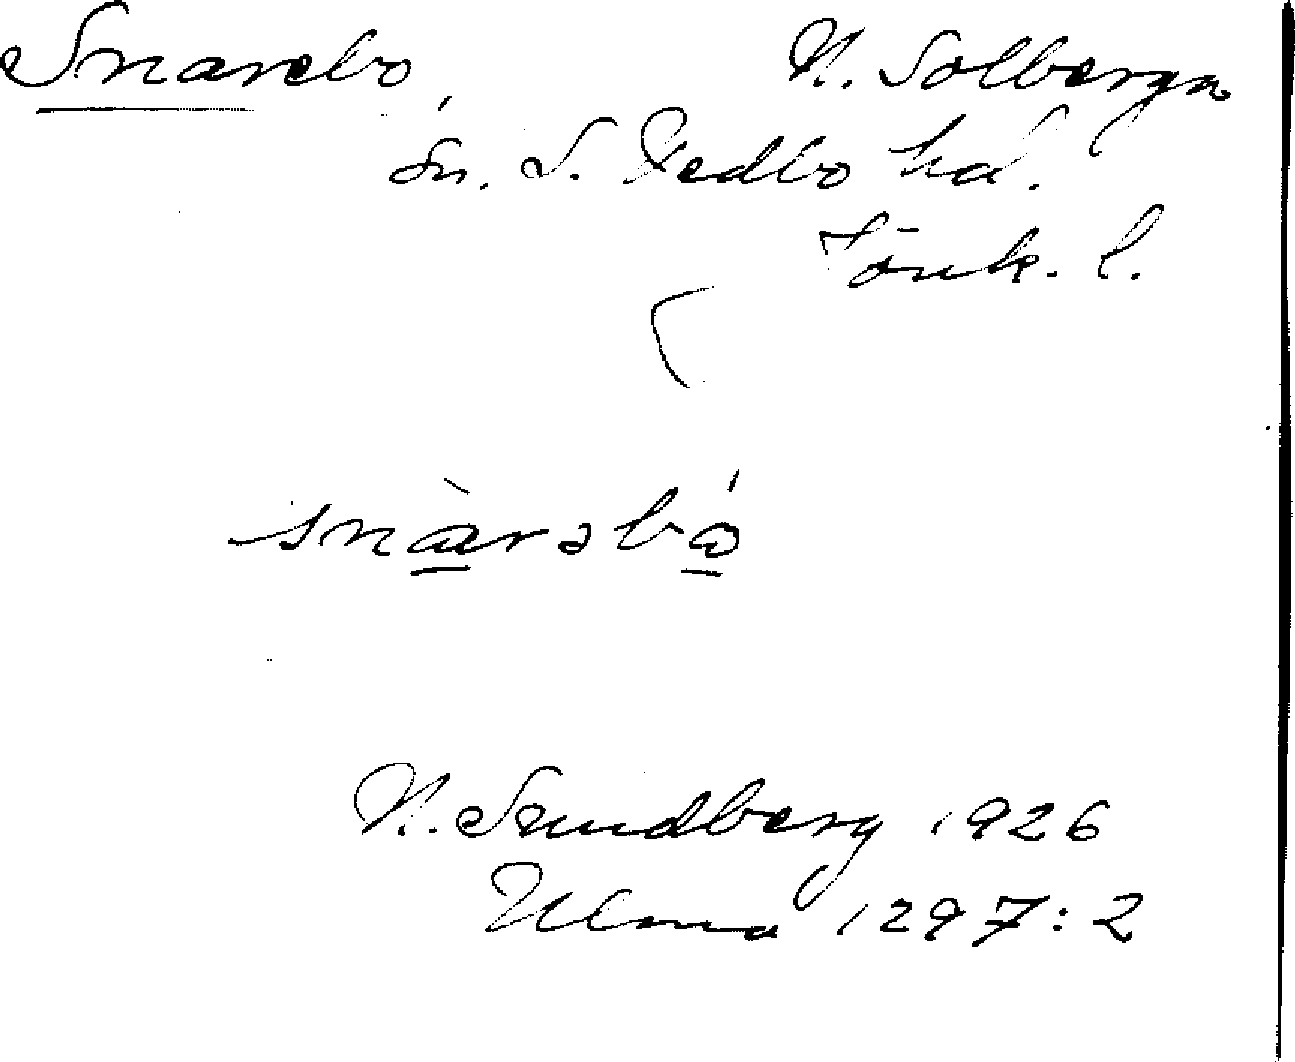 Snarebo, N. Solberga
sn. S. Vedbo hd.
Jönk. l.
snàrəbó
N. Sundberg 1926
Ulma 1297:2